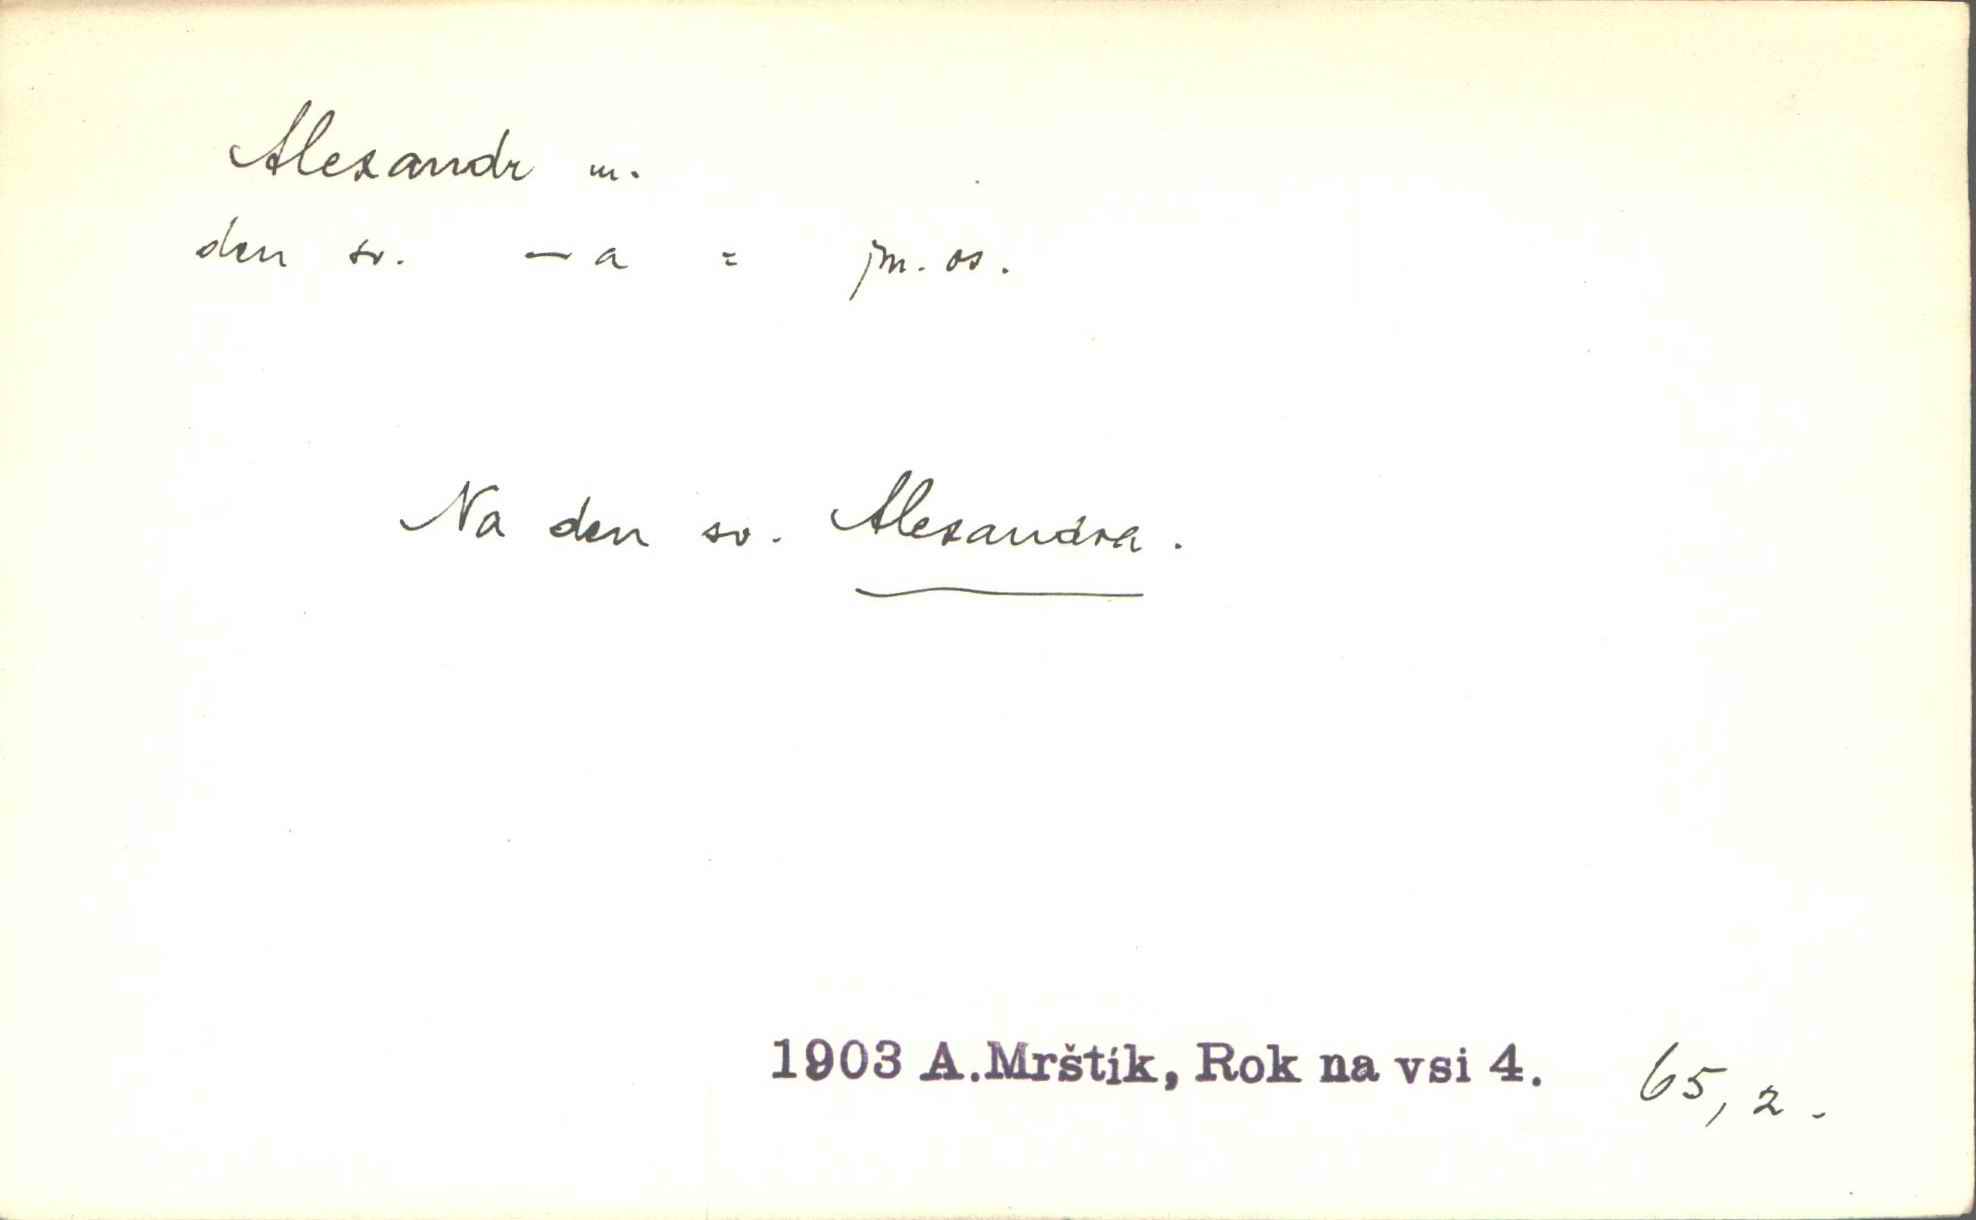 Alexandr m.
den sv. –a = jm. os.
Na den sv. Alexandra.
1903 A.Mrštík, Rok na vsi 4. 65, 2.